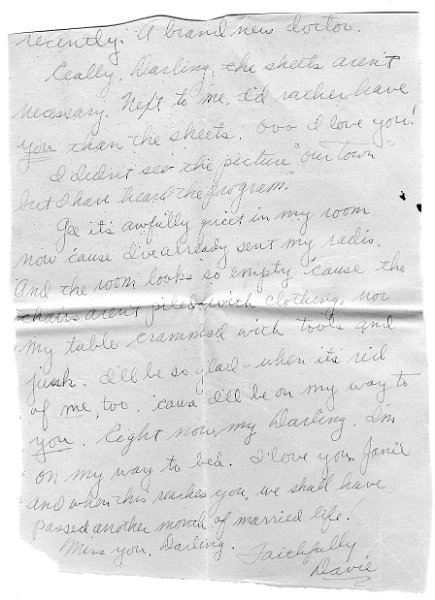 recently. A brand new doctor.
Really, Darling, the sheets aren't
necessary. Next to me, I'd rather have
you than the sheets. Ooo I love you!
I didn't see the picture "Our Town"
but I have heard the program.
Gee it's awfully quiet in my room
now 'cause I've already sent my radio.
And the room looks so empty 'cause the
chairs aren't piled with clothing, nor
my table crammed with tools and
junk. I'll be so glad - when it's rid
of me, too. 'cause I'll be on my way to
you. Right now, my Darling, I'm
on my way to bed. I love you, Janie
and when this reaches you, we shall have
passed another month of married life!
Miss you, Darling. Faithfully
Davie